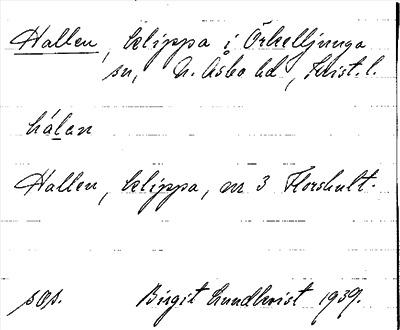 Hallen, klippa i Örkelljunga
sn, N. Åsbo hd, Krist. l.
hálen
Hallen, klippa, m 3 Florshult.
sop. Birgit Lundkvist 1939.